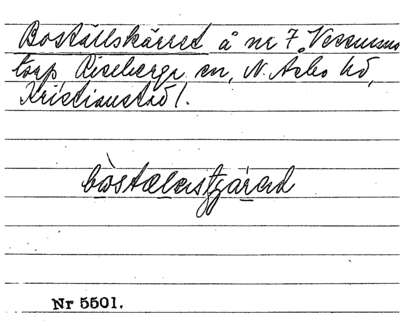 Boställskärret å nr 7 Vesums
torp Riseberga sn, N. Åsbo hd,
Kristianstad l.
bòstælastjárad
Nr 5501.